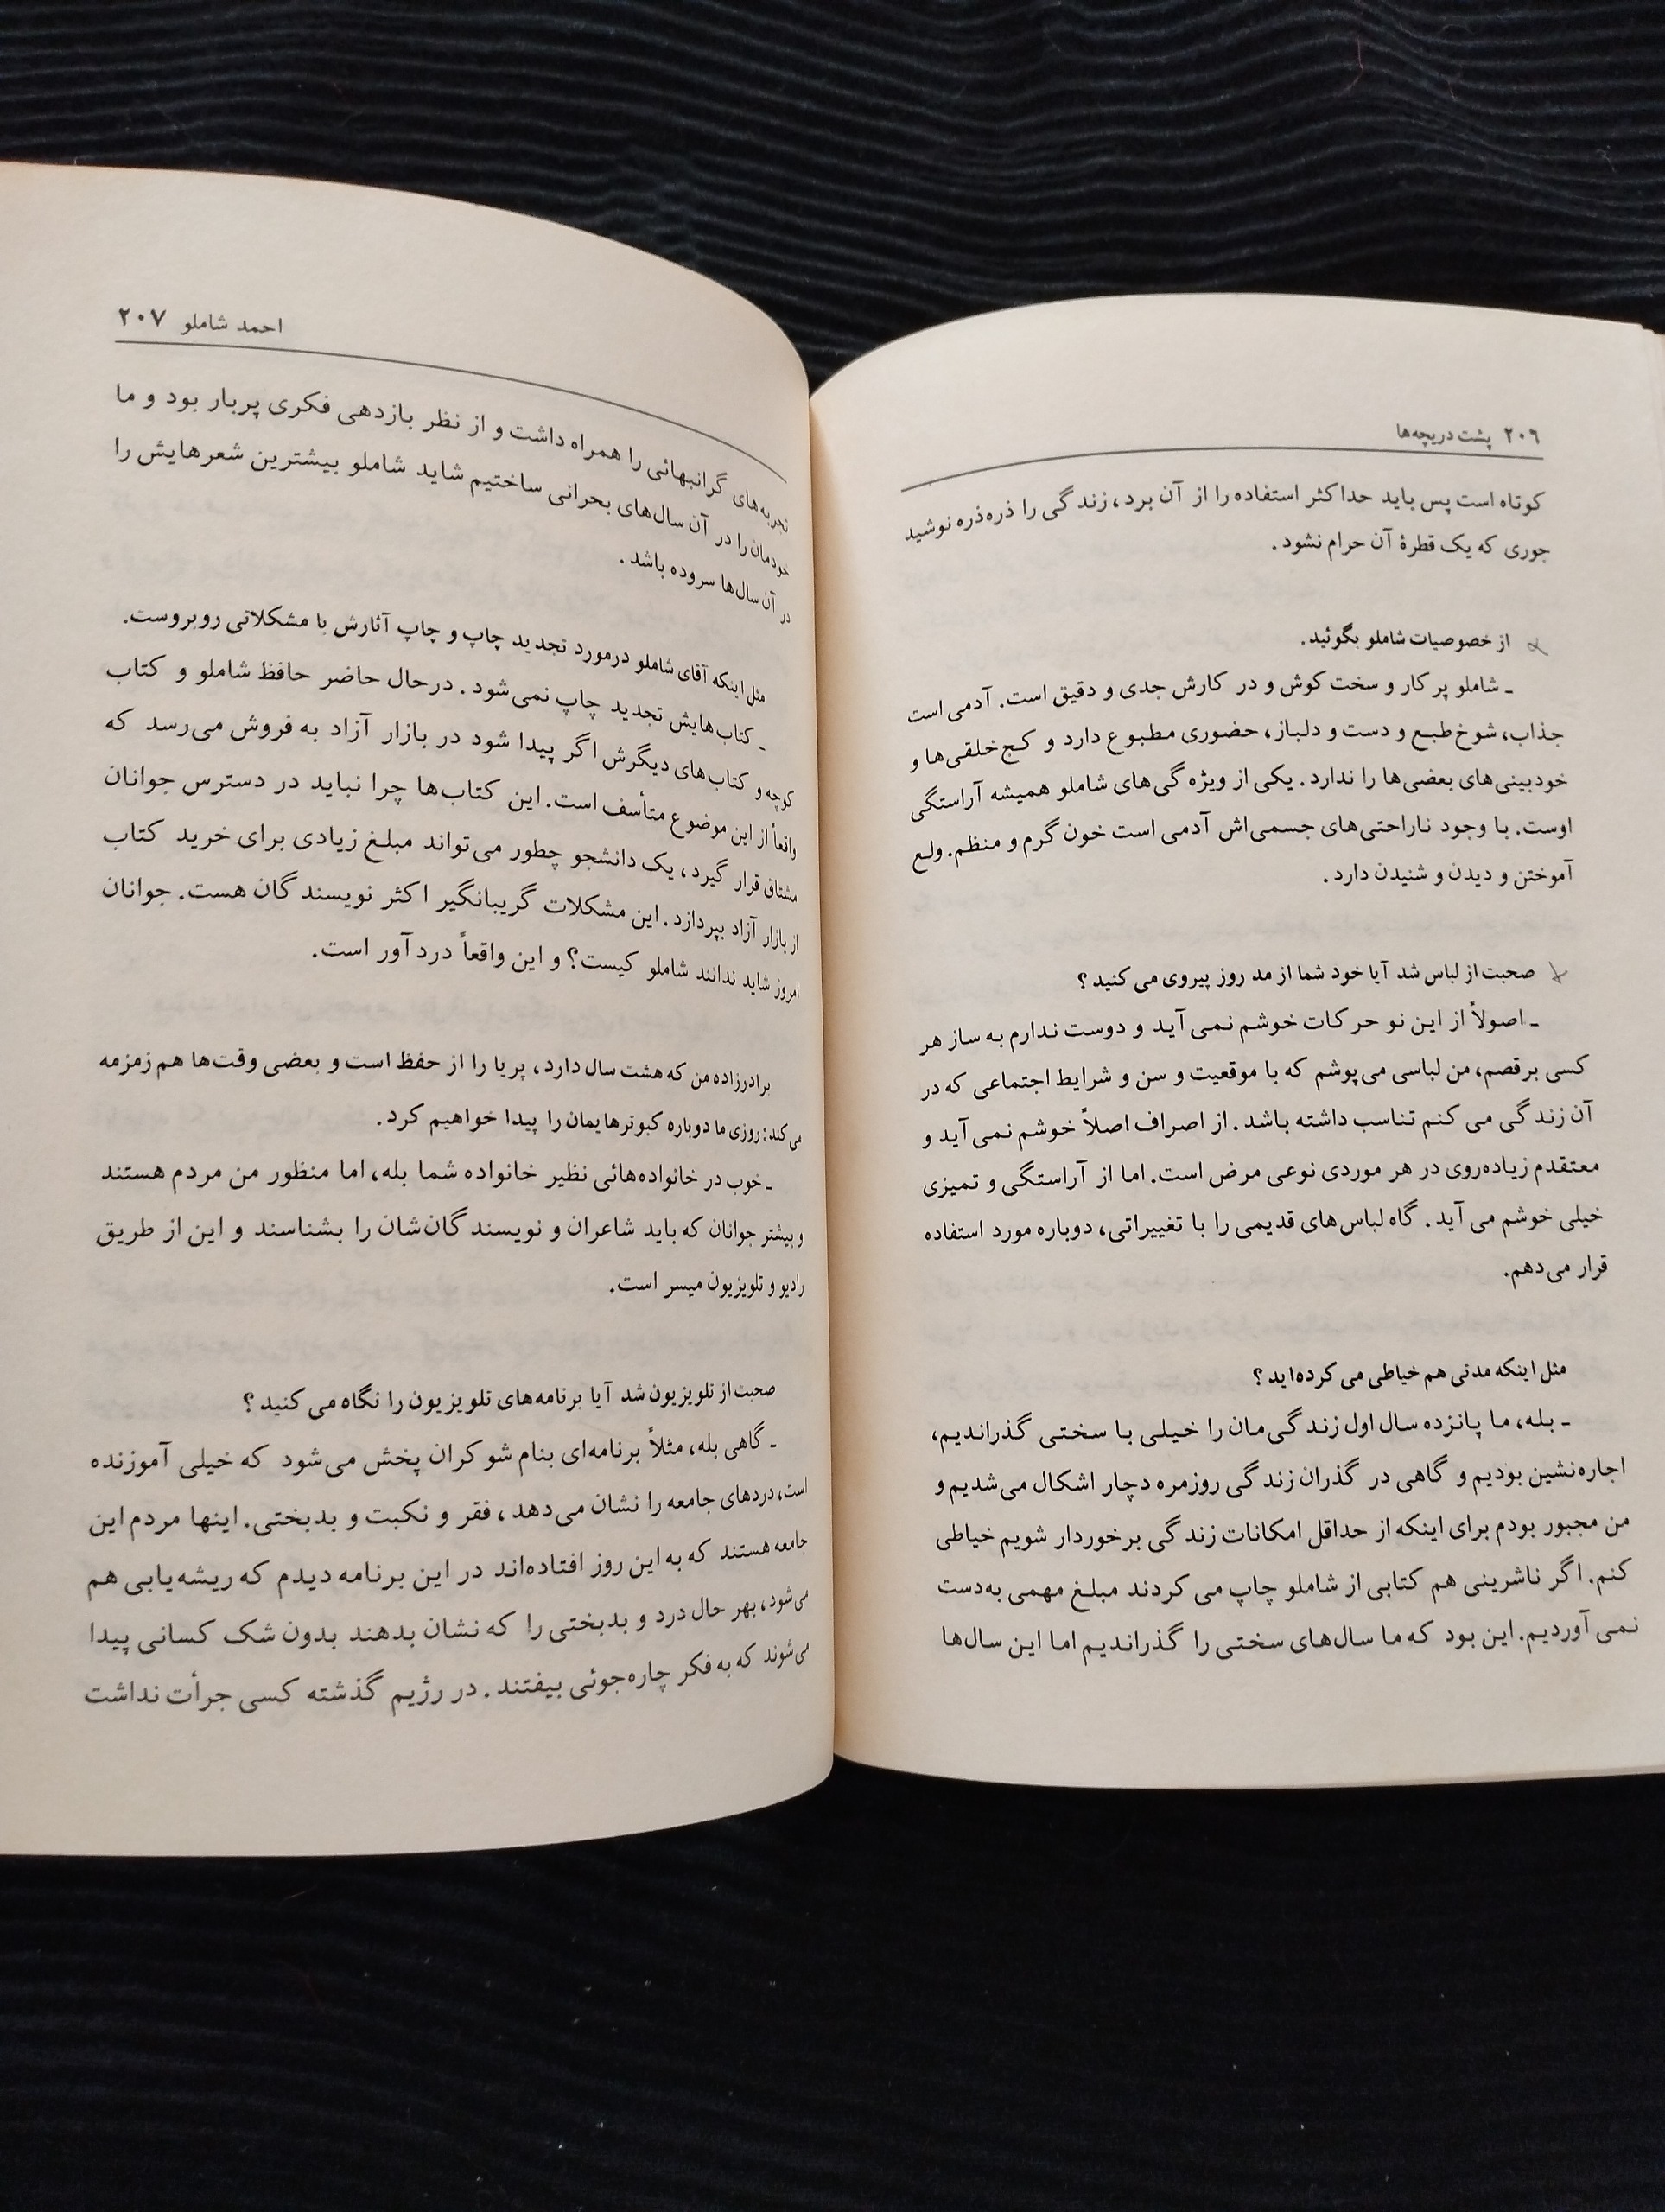 ۲۰۶ پشت دریچه‌ها
کوتاه است پس باید حداکثر استفاده را از آن برد، زندگی را ذره‌ذره نوشید
جوری که یک قطرهٔ آن حرام نشود.
از خصوصیات شاملو بگوئید.
ـ شاملو پر کار و سخت کوش و در کارش جدی و دقیق است. آدمی است
جذاب، شوخ‌طبع و دست و دلباز، حضوری مطبوع دارد و کج‌خلقی‌ها و
خودبینی‌های بعضی‌ها را ندارد. یکی از ویژه‌گی‌های شاملو همیشه آراستگی
اوست. با وجود ناراحتی‌های جسمی‌اش آدمی است خون گرم و منظم. ولع
آموختن و دیدن و شنیدن دارد.
صحبت از لباس شد آیا خود شما از مد روز پیروی می‌کنید؟
ـ اصولاً از این نو حرکات خوشم نمی‌آید و دوست ندارم به ساز هر
کسی برقصم، من لباسی می‌پوشم که با موقعیت و سن و شرایط اجتماعی که در
آن زندگی می‌کنم تناسب داشته باشد. از اصراف اصلاً خوشم نمی‌آید و
معتقدم زیاده‌روی در هر موردی نوعی مرض است. اما از آراستگی و تمیزی
خیلی خوشم می‌آید. گاه لباس‌های قدیمی را با تغییراتی، دوباره مورد استفاده
قرار می‌دهم.
مثل اینکه مدتی هم خیاطی می‌کرده‌اید؟
ـ بله، ما پانزده سال اول زندگی‌مان را خیلی با سختی گذراندیم،
اجاره‌نشین بودیم و گاهی در گذران زندگی روزمره دچار اشکال می‌شدیم و
من مجبور بودم برای اینکه از حداقل امکانات زندگی برخوردار شویم خیاطی
کنم. اگر ناشرینی هم کتابی از شاملو چاپ می‌کردند مبلغ مهمی به‌دست
نمی‌آوردیم. این بود که ما سال‌های سختی را گذراندیم اما این سال‌ها
احمد شاملو ۲۰۷
تجربه‌های گرانبهائی را همراه داشت و از نظر بازدهی فکری پربار بود و ما
خودمان را در آن سال‌های بحرانی ساختیم شاید شاملو بیشترین شعرهایش را
در آن سال‌ها سروده باشد.
مثل اینکه آقای شاملو درمورد تجدید چاپ و چاپ آثارش با مشکلاتی روبروست.
ـ کتاب‌هایش تجدید چاپ نمی‌شود. درحال حاضر حافظ شاملو و کتاب
کوچه و کتاب‌های دیگرش اگر پیدا شود در بازار آزاد به فروش می‌رسد که
واقعاً از این موضوع متأسف است. این کتاب‌ها چرا نباید در دسترس جوانان
مشتاق قرار گیرد، یک دانشجو چطور می‌تواند مبلغ زیادی برای خرید کتاب
از بازار آزاد بپردازد. این مشکلات گریبانگیر اکثر نویسندگان هست. جوانان
امروز شاید ندانند شاملو کیست؟ و این واقعاً درد آور است.
برادرزاده من که هشت سال دارد، پریا را از حفظ است و بعضی وقت‌ها هم زمزمه
می‌کند: روزی ما دوباره کبوترهایمان را پیدا خواهیم کرد.
ـ خوب در خانواده‌هائی نظیر خانواده شما بله، اما منظور من مردم هستند
و بیشتر جوانان که باید شاعران و نویسندگان‌شان را بشناسند و این از طریق
رادیو و تلویزیون میسر است.
صحبت از تلویزیون شد آیا برنامه‌های تلویزیون را نگاه می‌کنید؟
ـ گاهی بله، مثلاً برنامه‌ای بنام شوکران پخش می‌شود که خیلی آموزنده
است، دردهای جامعه را نشان می‌دهد، فقر و نکبت و بدبختی. اینها مردم این
جامعه هستند که به این روز افتاده‌اند در این برنامه دیدم که ریشه‌یابی هم
می‌شود، بهر حال درد و بدبختی را که نشان بدهند بدون شک کسانی پیدا
می‌شوند که به فکر چاره‌جوئی بیفتند. در رژیم گذشته کسی جرأت نداشت